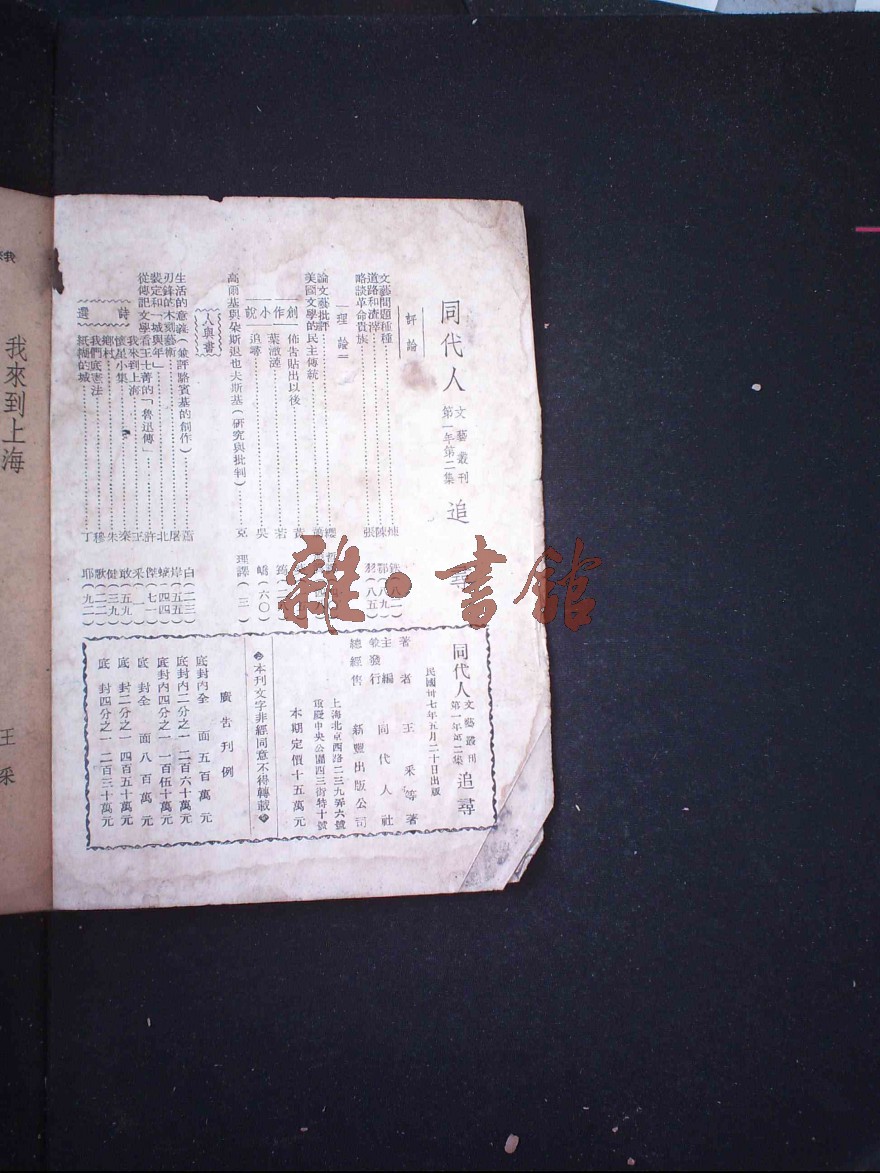 同代人
文藝叢刊
第一年第二集
追尋
評論
文藝問題種種
道路和渣滓
略談革命貴族
張 羽(八五)
理論
論文藝批評
美國文學的民主傳統
創作小說
佈告貼出以後
葉漱漣
追尋
吳 嶠(六〇)
高爾基與朵斯退也夫斯基(研究與批判)
克 理譯(三一)
人與書
生活的意義(兼評路賓基的創作)
刃鋒的木刻藝術
裝定和「城與年」
從傳記文學看王士菁的「魯迅傳」
詩選
我來到上海
懷星小集
鄉村
我們底憲法
紙糊的城
王 采
丁 耶(九二)
同代人
文藝叢刊
第一年第二集
追尋
民國卅七年五月二十日出版
著者 王采等著
主編兼發行 同代人社
總經售 新豐出版公司
上海北京西路二三九弄六號
重慶中央公園四三街特十號
本期定價十五萬元
本刊文字非經同意不得轉載
廣告刊例
底封內全面五百萬元
底封內二分之一二百六十萬元
底封內四分之一一百伍十萬元
底封全面八百萬元
底封二分之一四百五十萬元
底封四分之一二百三十萬元
我來到上海
王采
雜·書館